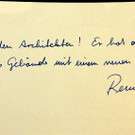 den Architekten! Er hat d
s Gebäude mit einem neuen